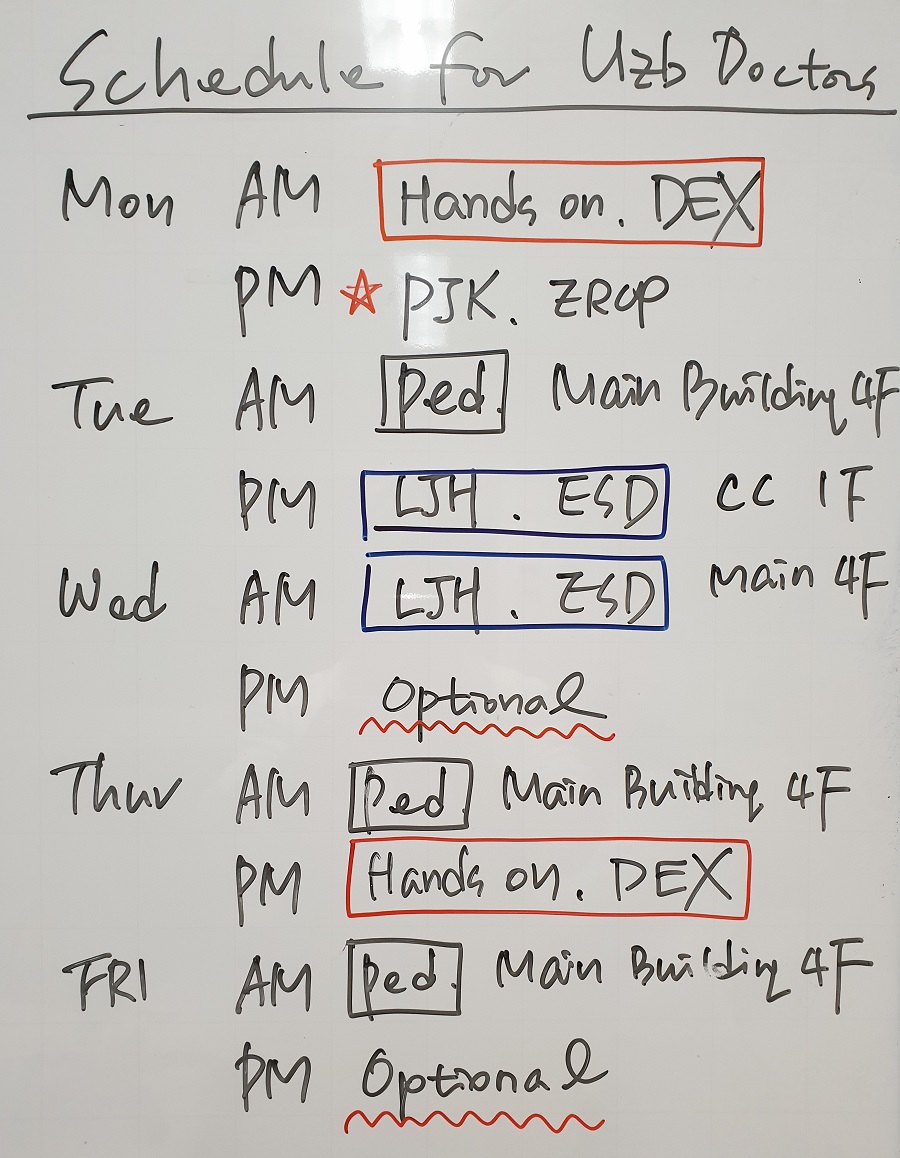 Schedule for Uzb Doctors
Mon AM Hands on. DEX
PM ☆ PJK. ERCP
Tue AM Ped. Main Building 4F
PM LJH. ESD CC 1F
Wed AM LJH. ESD Main 4F
PM Optional
Thur AM Ped. Main Building 4F
PM Hands on. DEX
FRI AM Ped. Main Building 4F
PM Optional